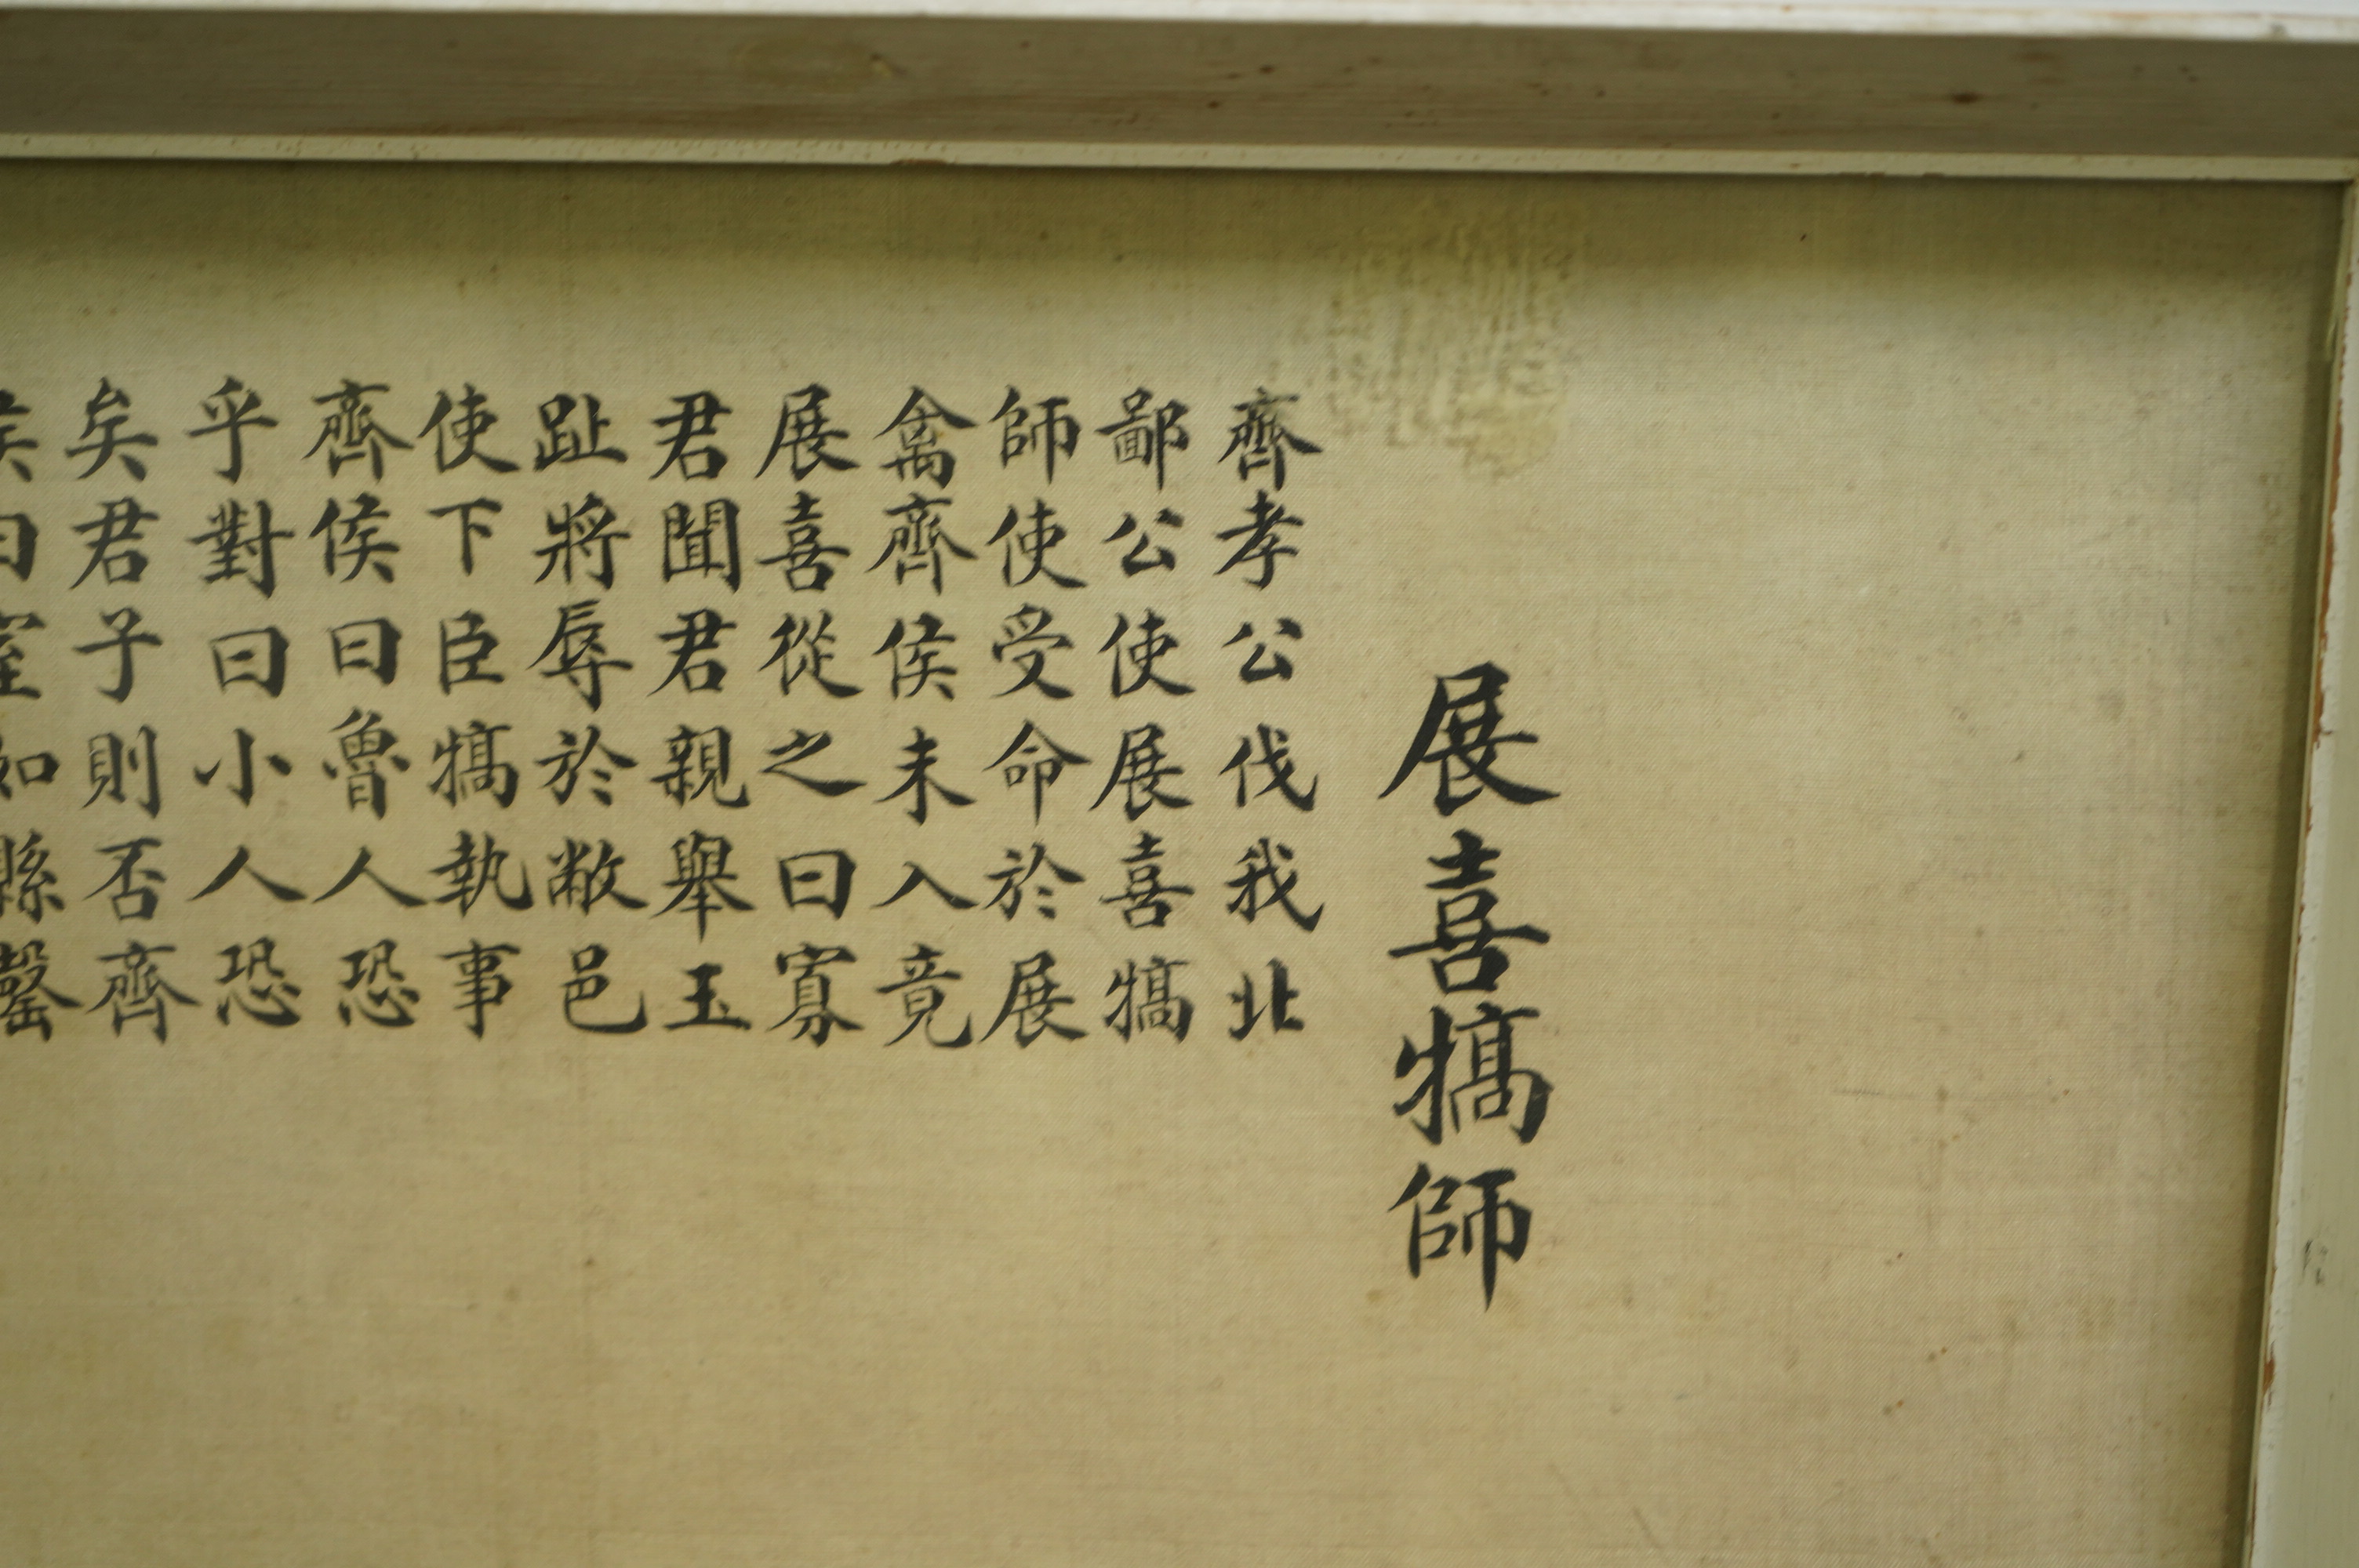 展喜犒師
齊孝公伐我北
鄙公使展喜犒
師使受命於展
禽齊侯未入竟
展喜從之曰寡
君聞君親舉玉
趾將辱於敝邑
使下臣犒執事
齊侯曰魯人恐
乎對曰小人恐
矣君子則否齊
侯曰室如縣罄